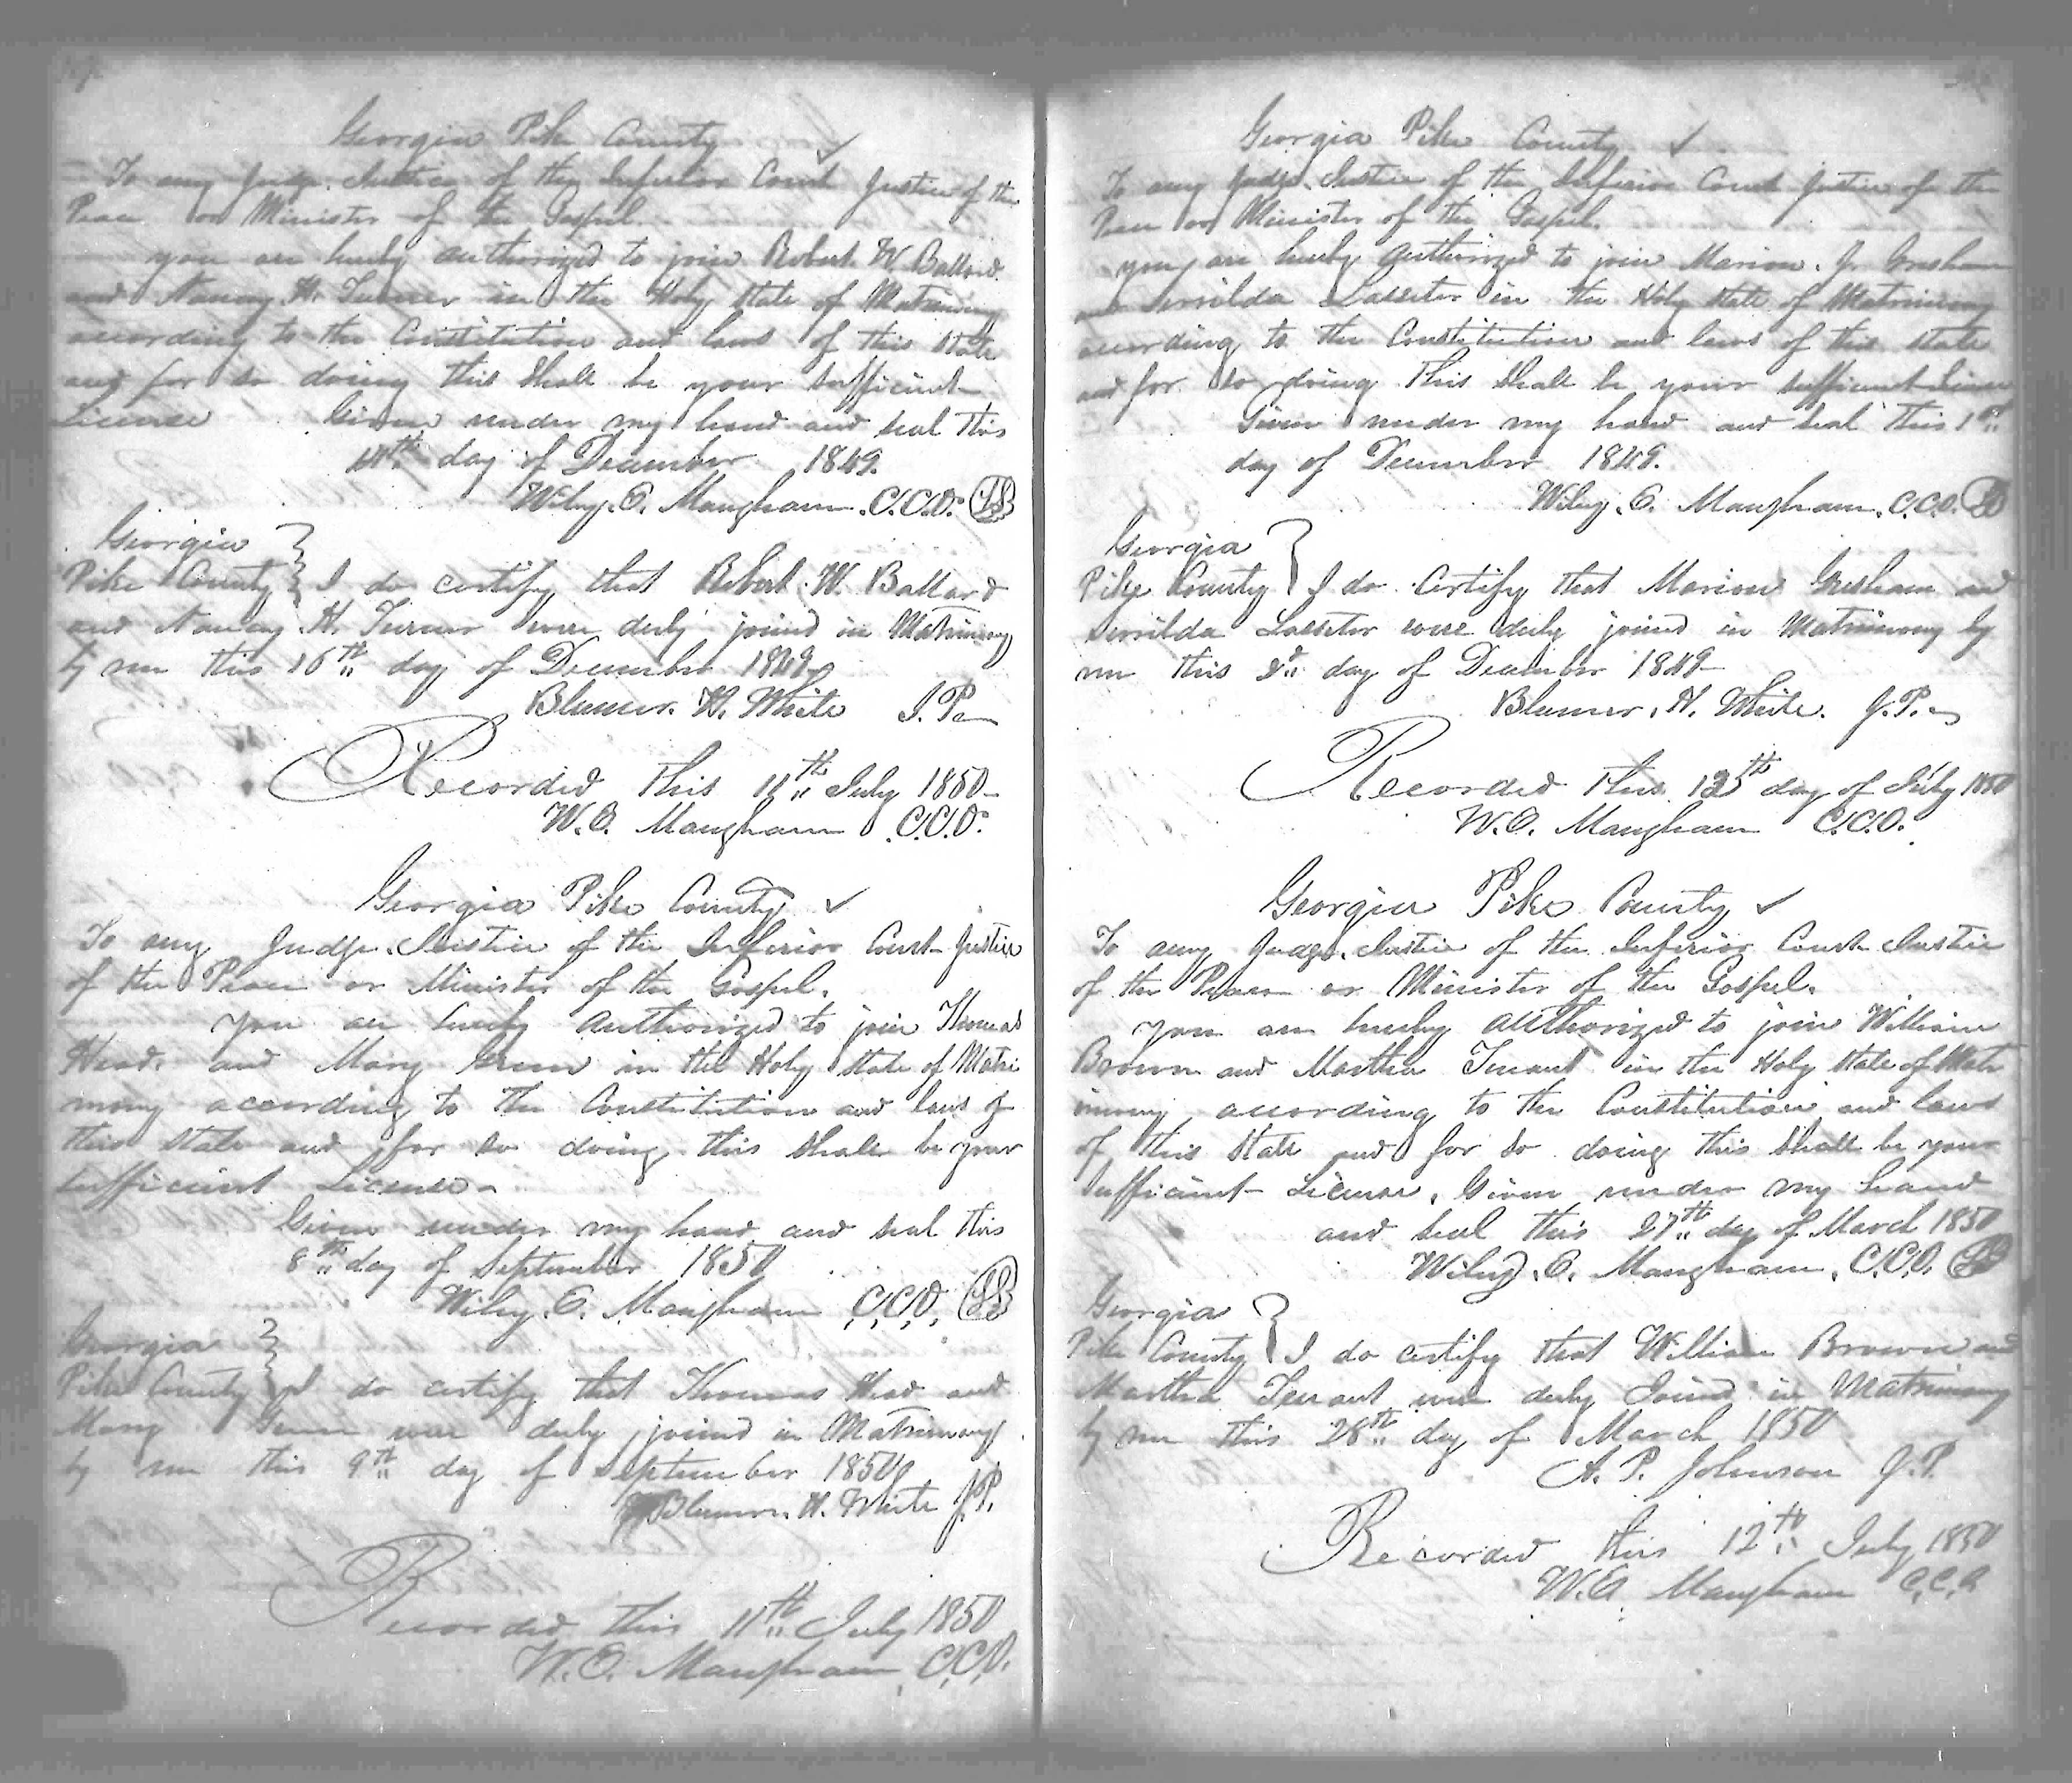 Georgia Pike County
To any Judge. Justice of the Inferior Court Justice of the
Peace or Minister of the Gospel.
you are hereby authorized to join Robert W. Ballard
and Nancy H. Turner in the Holy state of Matrimony
according to the Constitution and laws of this State
and for so doing this shall be your sufficient
License Given under my hand and seal this
day of December 1849.
Wiley. E. Mangham. C.C.O. LS
Georgia
Pike County I do certify that Robert. W. Ballard
and Nancy. H. Turner were duly joined in Matrimony
by me this 16th day of December 1849
Blumer. H. White J.P.
Recorded this 11th July 1850
W.E. Mangham C.C.O.
Georgia Pike County
To any Judge. Justice of the Inferior Court Justice
of the Peace or Minister of the Gospel.
you are hereby authorized to join Thomas
Head. and Mary in the Holy state of Matri
mony according to the Constitution and laws of
this state and for so doing this shall be your
sufficient License
Given under my hand and seal this
8th day of September 1850
Wiley. E. Mangham C.C.O. LS
Georgia
Pike County I do certify that Thomas Head and
Mary were duly joined in Matrimony
by me this 9th day of September 1850
Blumer. H. White J.P.
Recorded this 11th July 1850
W.E. Mangham C.C.O.
Georgia Pike County
To any Judge. Justice of the Inferior Court Justice of the
Peace or Minister of the Gospel.
you are hereby authorized to join Marion. J. Gresham
and Lasseter in the Holy state of Matrimony
according to the Constitution and laws of this state
and for so doing This shall be your sufficient License
Given under my hand and seal this 1st
day of December 1849.
Wiley. E. Mangham. C.C.O. LS
Georgia
Pike County I do Certify that Marion Gresham and
Lasseter were duly joined in Matrimony by
me this 2d day of December 1849
Blumer. H. White. J.P.
Recorded this day of July 1850
W.E. Mangham C.C.O.
Georgia Pike County
To any Judge. Justice of the Inferior Court Justice
of the Peace or Minister of the Gospel.
you are hereby authorized to join William
Brown and Martha in the Holy state of Matri
mony according to the Constitution and laws
of this State and for so doing this shall be your
Sufficient License. Given under my hand
and seal this 27th day of March 1850
Wiley. E. Mangham. C.C.O. LS
Georgia
Pike County I do certify that William Brown and
Martha were duly Joined in Matrimony
by me this 28th day of March 1850
A. P. Johnson J.P.
Recorded this 12th July 1850
W.E. Mangham C.C.O.